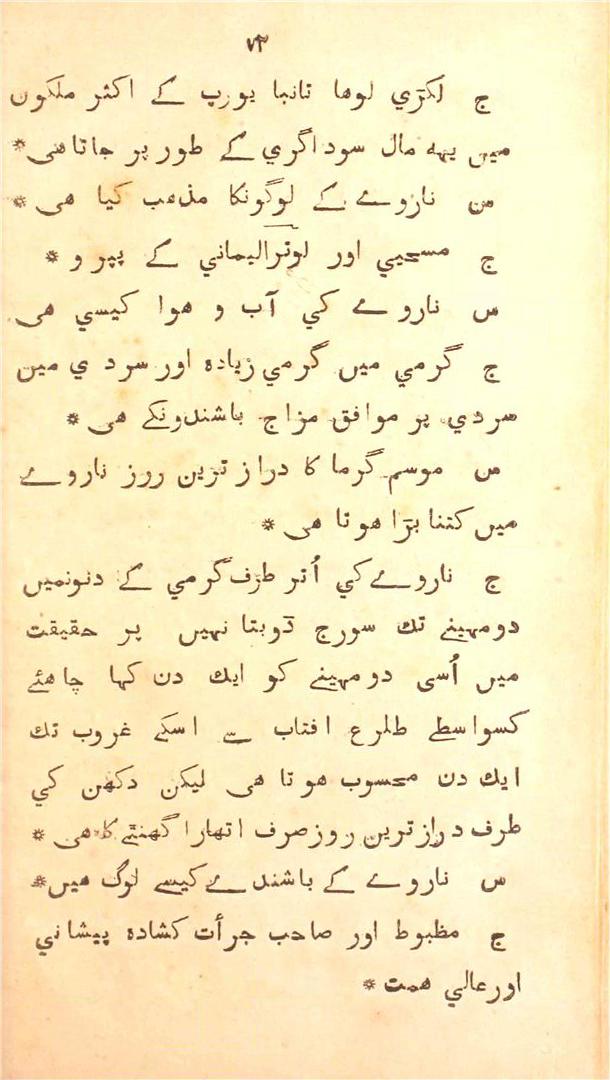 ٧٣
ج لکڙي لوها تانبا يورپ کے اکثر ملکون
ميں يهه مال سوداگري کے طور پر جاتا هی *
س ناروے کے لوگونکا مذهب کيا هی *
ج مسحيي اور لوترالیماني کے پيرو *
س ناروے کي آب و هوا کيسي هی
ج گرمي ميں گرمي زياده اور سردي مين
سردي پر موافق مزاج باشندونکے هی *
س موسم گرما کا دراز ترين روز ناروے
ميں کتنا بڙا هوتا هی *
ج ناروے کي اُتر طرف گرمي کے دنونميں
دو مهينے تک سورج ڈوبتا نهيں پر حقيقت
ميں اُسی دو مهينے کو ايک دن کها چاهئے
کسواسطے طلوع افتاب سے اسکے غروب تک
ايک دن محسوب هوتا هی ليکن دکهن کي
طرف دراز ترين روز صرف اتهارا گهنٹے کا هی *
س ناروے کے باشندے کيسے لوگ هيں *
ج مظبوط اور صاحب جرأت کشاده پيشاني
اور عالي همت *